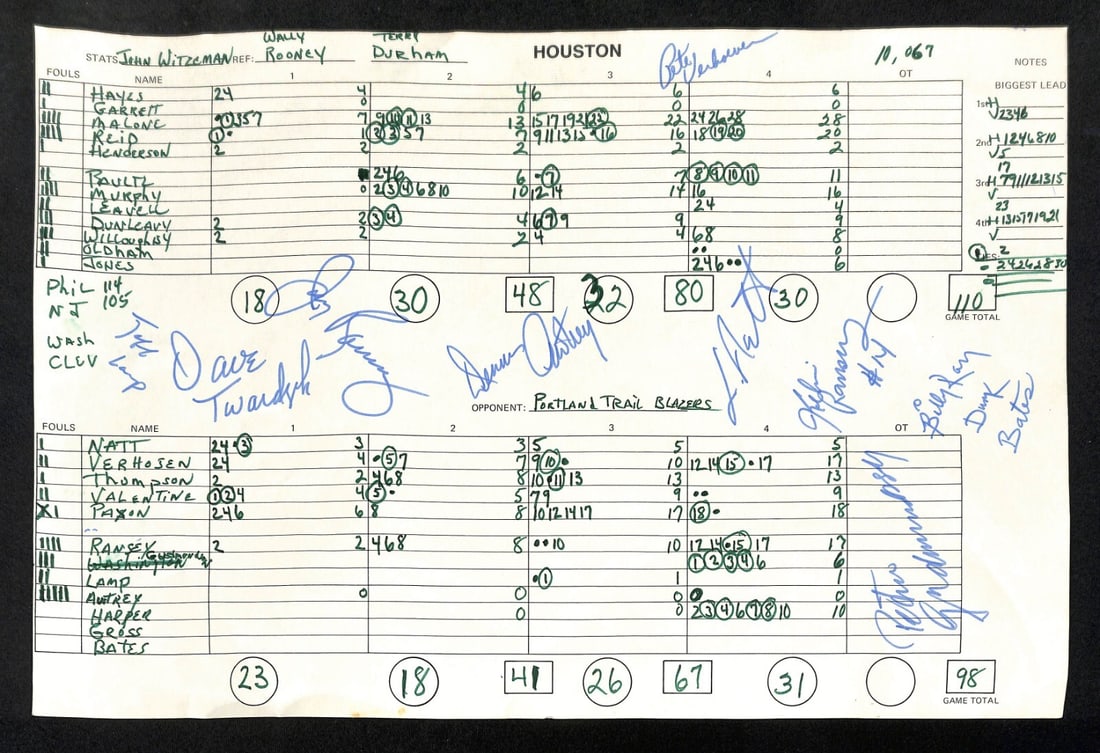 WALLY TERRY
STATS JOHN WITZEMAN REF: ROONEY DURHAM HOUSTON Pete Verhoeven 10,067
FOULS NAME 1 2 3 4 OT NOTES
BIGGEST LEAD
HAYES 24 4 4 6 6 6
GARRETT 0 0 0 0
MALONE 7 9 10 11 13 13 15 17 19 21 22 22 24 26 28 28
REID 1 2 3 5 7 7 9 11 13 15 16 16 18 19 20 20
HENDERSON 2 2 2 2 2
PAULTZ 246 6 7 7 8 9 10 11 11
MURPHY 0 2 3 4 6 8 10 10 12 14 14 16 16
LEAVELL 24 4
DUNLEAVY 2 2 3 4 4 6 7 9 9 9
WILLOUGHBY 2 2 2 4 4 68 8
OLDHAM 0
JONES 246 6
1st H
√ 2346
2nd H 1246810
√ 5
17
3rd H 7911121315
√
23
4th H 1315171921
√
Phil 114
NJ 105
WASH
CLEV
18 30 48 32 80 30 110
GAME TOTAL
Dave Twardzik
Jeff Lamp
Kelvin Ransey #14
Billy Ray Bates
OPPONENT: PORTLAND TRAIL BLAZERS
FOULS NAME 1 2 3 4 OT
NATT 24 3 3 3 5 5 5
VERHOSEN 24 4 5 7 7 9 10 10 12 14 15 17 17
Thompson 2 2 468 8 10 11 13 13 13
VALENTINE 1 2 4 4 5 5 79 9 9
PAXON 246 6 8 8 10 12 14 17 17 18 18
RANSEY 2 2 468 8 10 10 12 14 15 17 17
WASHINGTON 1 2 3 4 6 6
LAMP 1 1 1
AUTREY 0 0 0 0
HARPER 0 0 2 3 4 6 7 8 10 10
GROSS
BATES
Petur Gudmundsson
23 18 41 26 67 31 98
GAME TOTAL